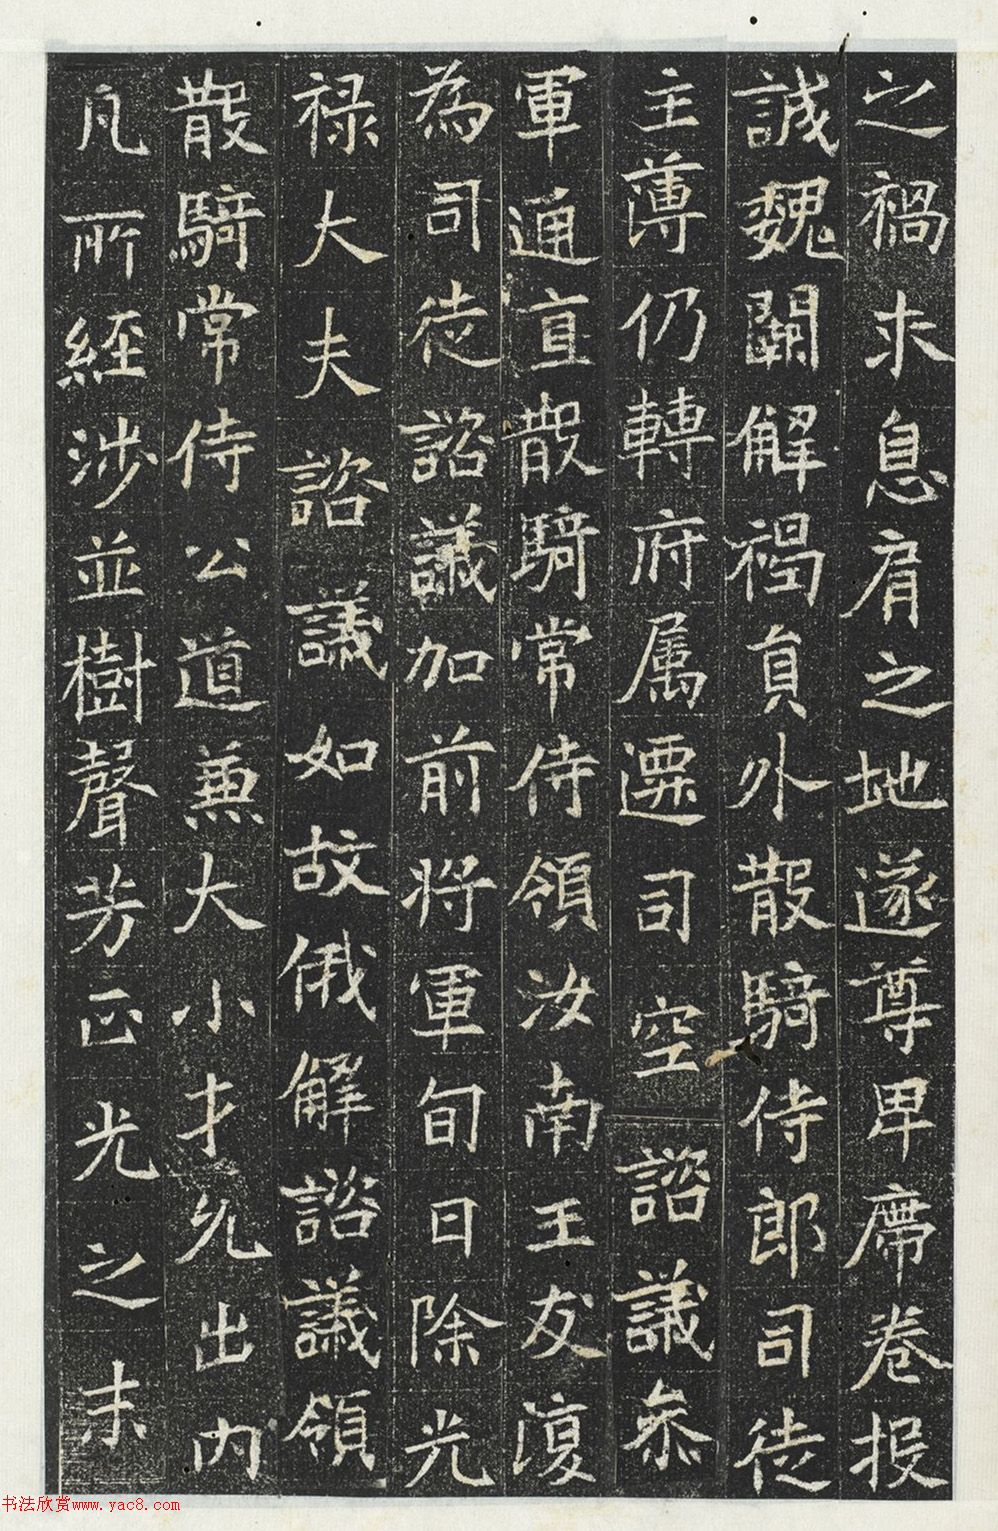 之禍求息肩之地遂尊卑席卷投
誠魏闕解褐員外散騎侍郎司徒
主薄仍轉府属遷司空諮議叅
軍通直散騎常侍領汝南王友復
為司徒諮議加前將軍旬日除光
禄大夫諮議如故俄解諮議領
散騎常侍公道兼大小才允出内
凡所經涉並樹聲芳正光之末
书法欣赏www.yac8.com